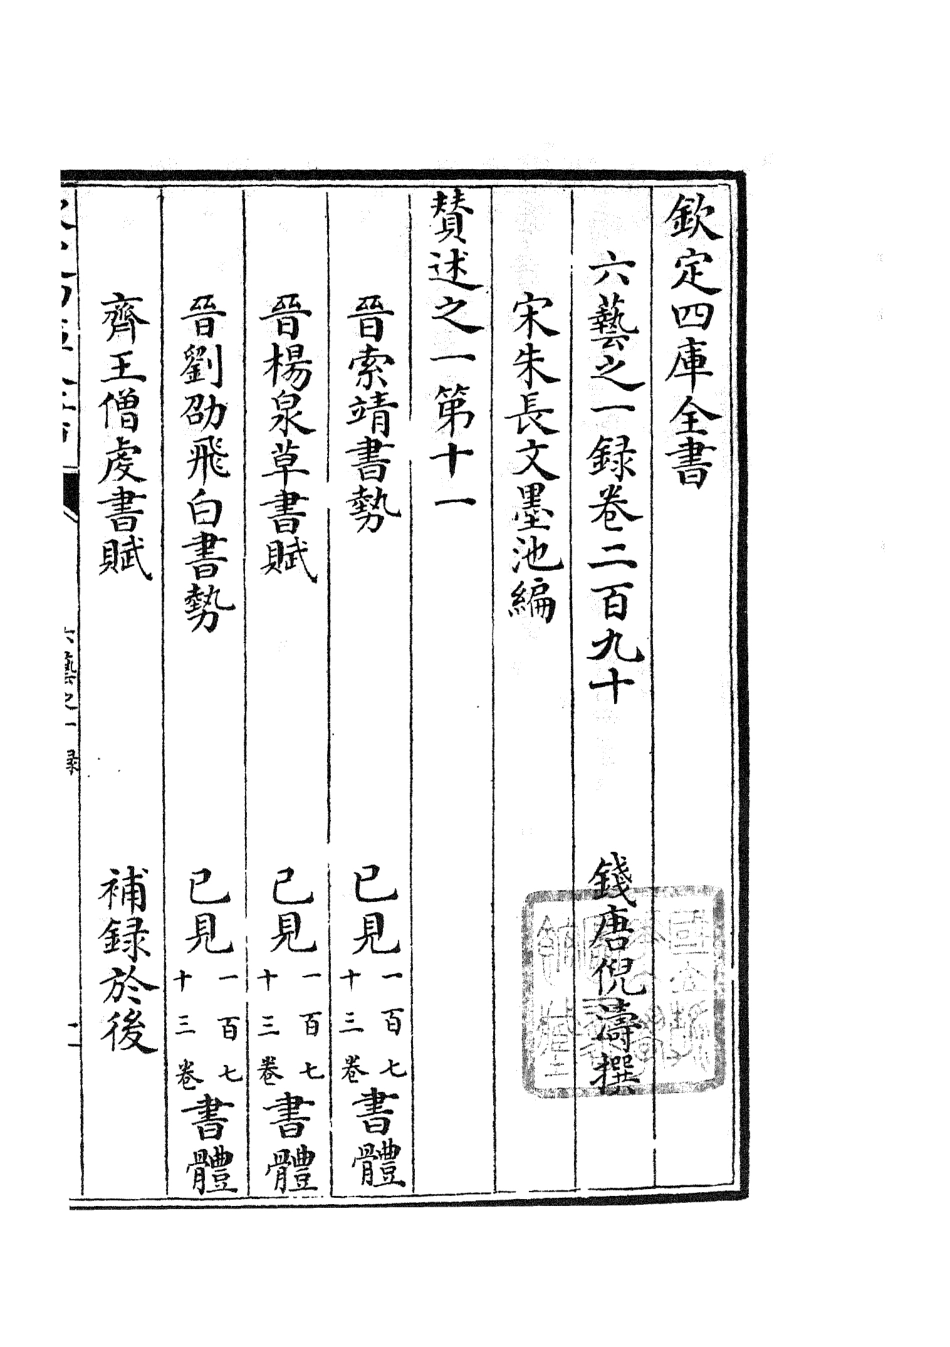 欽定四庫全書
六藝之一録卷二百九十　錢唐倪濤撰
宋朱長文墨池編
賛述之一第十一
晉索靖書勢　已見一百七十三卷書體
晉楊泉草書賦　已見一百七十三卷書體
晉劉劭飛白書勢　已見一百七十三卷書體
齊王僧虔書賦　補録於後
六藝之一録